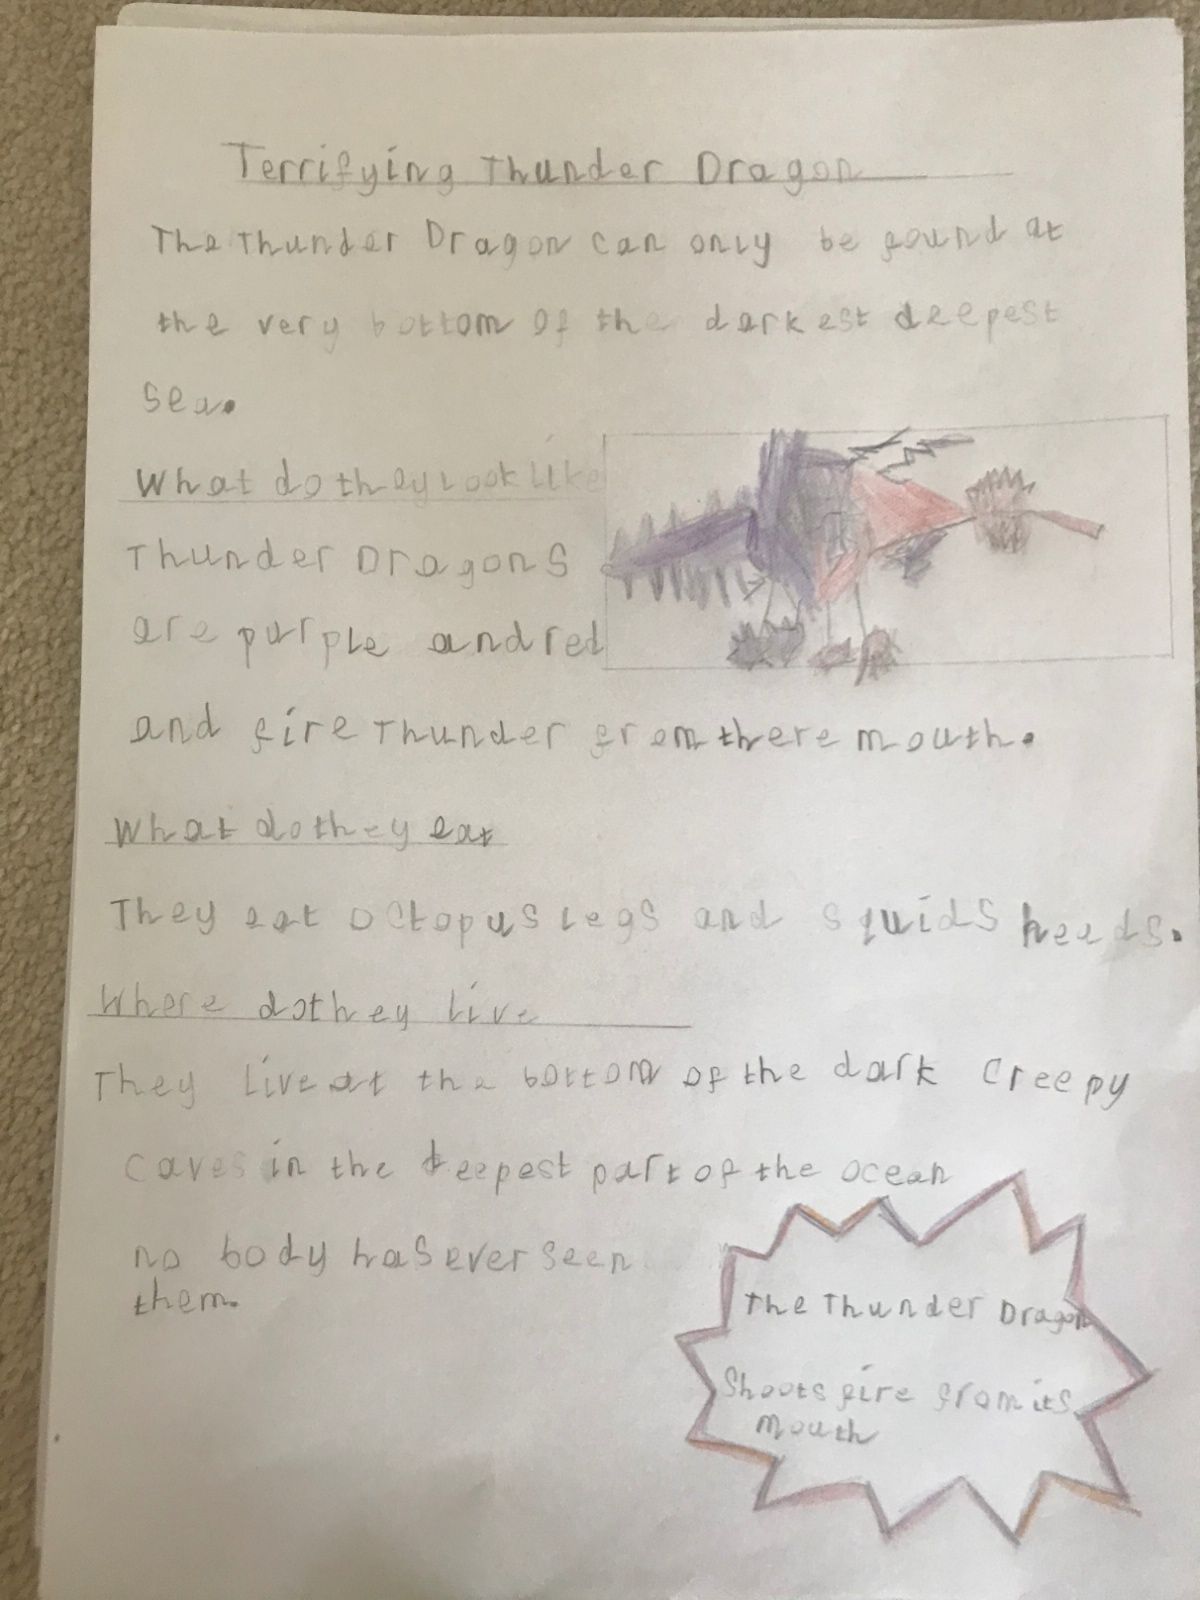 Terrifying Thunder Dragon
The Thunder Dragon can only be found at
the very bottom of the darkest deepest
sea.
What do they look like
Thunder Dragons
are purple and red
and fire Thunder from there mouth.
What do they eat
They eat octopus legs and squids heads.
Where do they live
They live at the bottom of the dark creepy
caves in the deepest part of the ocean
no body has ever seen
them.
The Thunder Dragon
Shoots fire from its
mouth